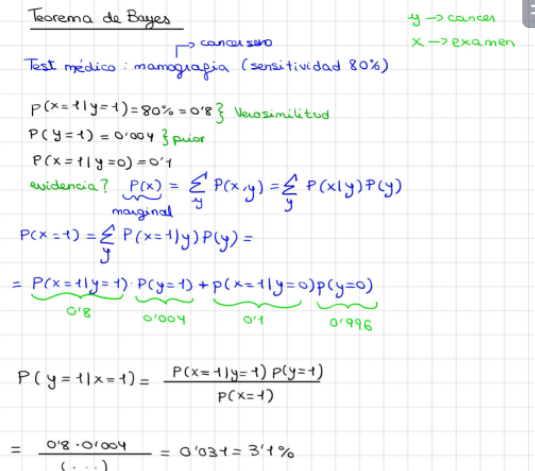 Teorema de Bayes
y → cancer
x → examen
→ cancer seno
Test médico: mamografia (sensitividad 80%)
P(x=1|y=1)=80%=0'8} Verosimilitud
P(y=1)=0'004 }prior
P(x=1|y=0)=0'1
evidencia? P(x) = Σ_y P(x,y) = Σ_y P(x|y)P(y)
marginal
P(x=1) = Σ_y P(x=1|y)P(y) =
= P(x=1|y=1)·P(y=1)+p(x=1|y=0)p(y=0)
0'8 0'004 0'1 0'996
P(y=1|x=1)= P(x=1|y=1) p(y=1)
P(x=1)
= 0'8·0'004 = 0'031=3'1%
(...)